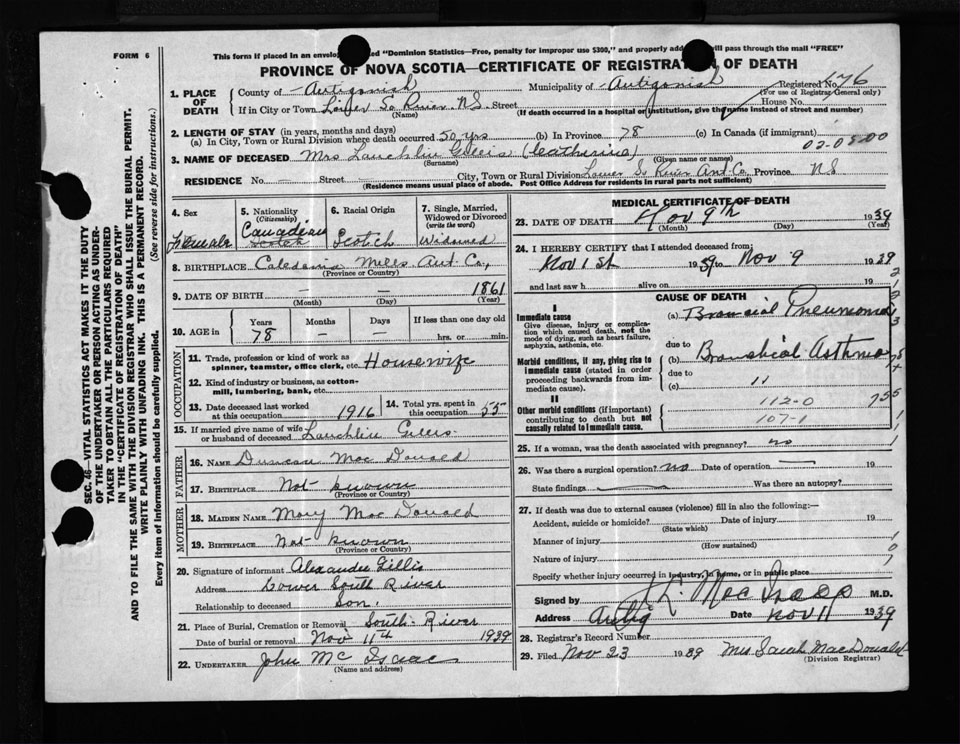 FORM 6
This form if placed in an envelo ed "Dominion Statistics—Free, penalty for improper use $300," and properly ad will pass through the mail "FREE"
PROVINCE OF NOVA SCOTIA—CERTIFICATE OF REGISTRAT N OF DEATH
1. PLACE OF DEATH
County of Antigonish Municipality of Antigonish Registered No. 476
(For use of Registrar-General only)
If in City or Town So River N.S. Street House No.
(Name) (If death occurred in a hospital or institution, give the name instead of street and number)
2. LENGTH OF STAY (in years, months and days)
(a) In City, Town or Rural Division where death occurred 50 yrs (b) In Province 78 (c) In Canada (if immigrant)
02-0500
3. NAME OF DECEASED Mrs Lauchlin Gillis (Catherine)
(Surname) (Given name or names)
RESIDENCE No. — Street — City, Town or Rural Division Lower So River Ant. Co. Province NS
(Residence means usual place of abode. Post Office Address for residents in rural parts not sufficient)
4. Sex Female
5. Nationality (Citizenship) Canadian Scotch
6. Racial Origin Scotch
7. Single, Married, Widowed or Divorced (write the word) Widowed
8. BIRTHPLACE Caledonia Mills Ant Co,
(Province or Country)
9. DATE OF BIRTH — — 1861
(Month) (Day) (Year)
10. AGE in Years Months Days If less than one day old
78 — — hrs. or min.
OCCUPATION
11. Trade, profession or kind of work as spinner, teamster, office clerk, etc. Housewife
12. Kind of industry or business, as cotton-mill, lumbering, bank, etc.
13. Date deceased last worked at this occupation 1916
14. Total yrs. spent in this occupation 55
15. If married give name of wife or husband of deceased Lauchlin Gillis
FATHER
16. NAME Duncan Mac Donald
17. BIRTHPLACE Not known
(Province or Country)
MOTHER
18. MAIDEN NAME Mary Mac Donald
19. BIRTHPLACE Not known
(Province or Country)
20. Signature of informant Alexander Gillis
Address Lower South River
Relationship to deceased Son.
21. Place of Burial, Cremation or Removal South River
Date of burial or removal Nov 11th 1939
22. UNDERTAKER John Mc Isaac
(Name and address)
MEDICAL CERTIFICATE OF DEATH
23. DATE OF DEATH Nov 9th 1939
(Month) (Day) (Year)
24. I HEREBY CERTIFY that I attended deceased from:
Nov 1st 1939 to Nov 9 1939
and last saw h alive on 19
CAUSE OF DEATH
I
Immediate cause
Give disease, injury or complication which caused death, not the mode of dying, such as heart failure, asphyxia, asthenia, etc.
(a) Broncial Pneumonia
due to
Morbid conditions, if any, giving rise to immediate cause (stated in order proceeding backwards from immediate cause).
(b) Bronchial Asthma
due to
(c) 11
II
Other morbid conditions (if important) contributing to death but not causally related to immediate cause.
112-0
107-1
25. If a woman, was the death associated with pregnancy? no
26. Was there a surgical operation? no Date of operation — 19
State findings Was there an autopsy?
27. If death was due to external causes (violence) fill in also the following:—
Accident, suicide or homicide? Date of injury 19
(State which)
Manner of injury
(How sustained)
Nature of injury
Specify whether injury occurred in industry, in home, or in public place
Signed by M.D.
Address Antig Date Nov 11 1939
28. Registrar's Record Number
29. Filed Nov 23 1939 Mrs Sarah MacDonald
(Division Registrar)
SEC. 46—VITAL STATISTICS ACT MAKES IT THE DUTY
OF THE UNDERTAKER OR PERSON ACTING AS UNDER-
TAKER TO OBTAIN ALL THE PARTICULARS REQUIRED
IN THE "CERTIFICATE OF REGISTRATION OF DEATH"
AND TO FILE THE SAME WITH THE DIVISION REGISTRAR WHO SHALL ISSUE THE BURIAL PERMIT.
WRITE PLAINLY WITH UNFADING INK. THIS IS A PERMANENT RECORD.
Every item of information should be carefully supplied. (See reverse side for instructions.)